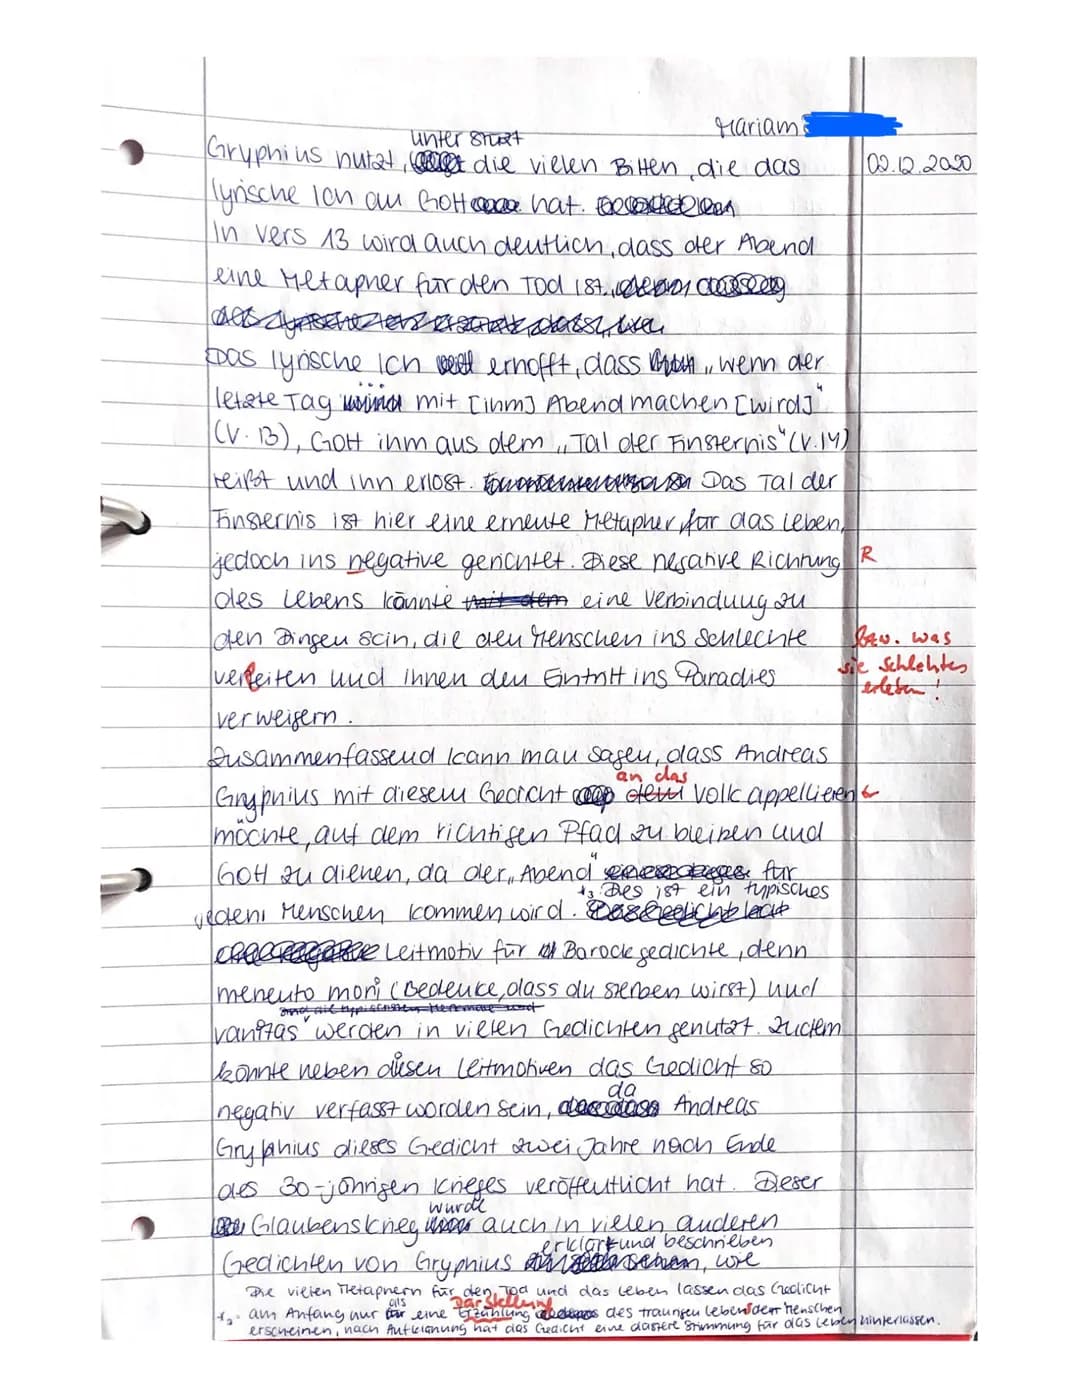 Mariam
02.12.2020
unterstützt
Gryphius nutzt, die vielen Bitten, die das
lyrische Ich an Gott hat.
In Vers 13 wird auch deutlich, dass der Abend
eine Metapher für den Tod ist.
Das lyrische Ich erhofft, dass „wenn der
letzte Tag wird mit [ihm] Abend machen [wird]"
(V. 13), Gott ihm aus dem „Tal der Finsternis" (V. 14)
reißt und ihn erlöst. Das Tal der
Finsternis ist hier eine erneute Metapher für das Leben,
jedoch ins negative gerichtet. Diese negative Richtung R
des Lebens könnte mit dem eine Verbindung zu
den Dingen sein, die den Menschen ins Schlechte bzw. was
sie Schlechtes
verleiten und ihnen den Eintritt ins Paradies erleben!
verweigern.
Zusammenfassend kann man sagen, dass Andreas
an das
Gryphius mit diesem Gedicht dem Volk appellieren
möchte, auf dem richtigen Pfad zu bleiben und
Gott zu dienen, da der „Abend" für
*3 Dies ist ein typisches
jeden Menschen kommen wird.
Leitmotiv für Barockgedichte, denn
memento mori (Bedenke, dass du sterben wirst) und
vanitas" werden in vielen Gedichten genutzt. Zudem
könnte neben diesen Leitmotiven das Gedicht so
da
negativ verfasst worden sein, Andreas
Gryphius dieses Gedicht zwei Jahre nach Ende
des 30-jährigen Krieges veröffentlicht hat. Dieser
wurde
Glaubenskrieg auch in vielen anderen
erklärt und beschrieben
Gedichten von Gryphius, wie
Die vielen Metaphern für den Tod und das Leben lassen das Gedicht
als Darstellung
*2. am Anfang nur für eine Erzählung des traurigen Lebens der Menschen
erscheinen, nach Aufklärung hat das Gedicht eine düstere Stimmung für das Leben hinterlassen.